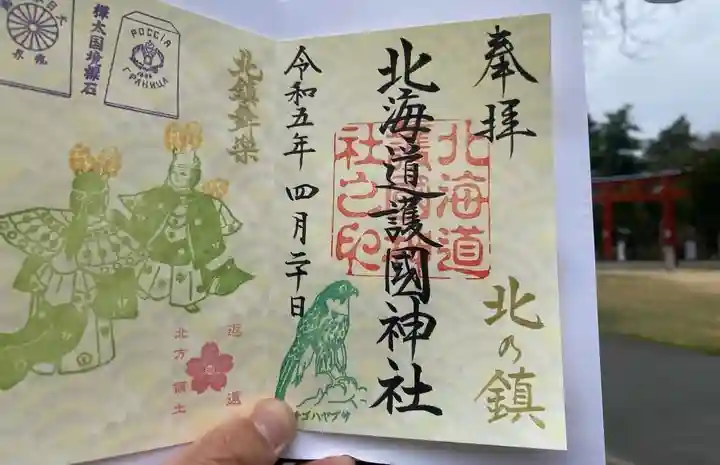 奉拝
北海道護國神社
北海道
護國神
社之印
北の鎮
令和五年四月二十日
チゴハヤブサ
北鎮舞楽
返還
北方領土
樺太国境標石
РОССІЯ
ГРАНИЦА